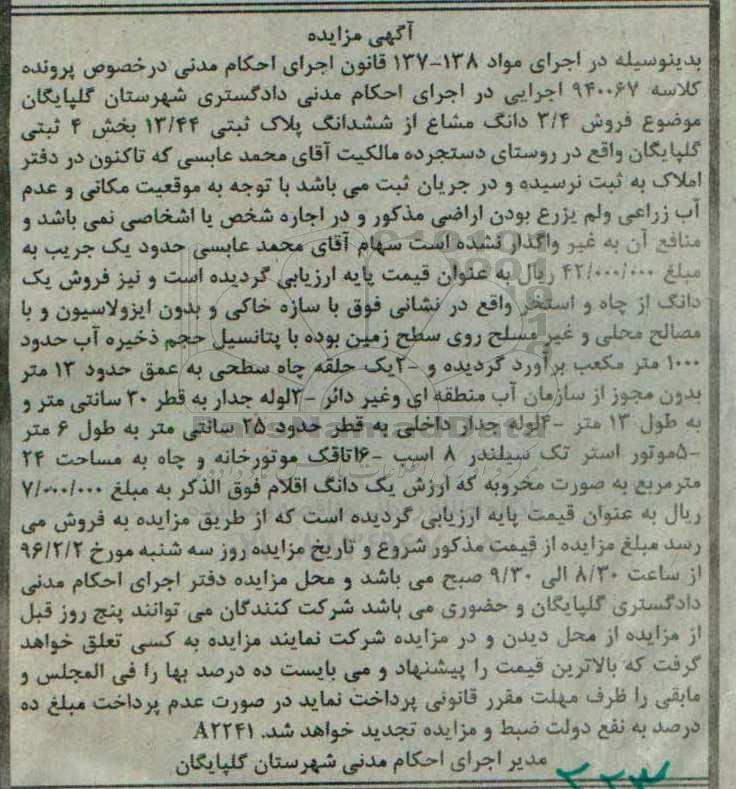 آگهی مزایده
بدینوسیله در اجرای مواد ۱۳۸-۱۳۷ قانون اجرای احکام مدنی درخصوص پرونده
کلاسه ۹۴۰۰۶۷ اجرایی در اجرای احکام مدنی دادگستری شهرستان گلپایگان
موضوع فروش ۳/۴ دانگ مشاع از ششدانگ پلاک ثبتی ۱۳/۴۴ بخش ۴ ثبتی
گلپایگان واقع در روستای دستجرده مالکیت آقای محمد عابسی که تاکنون در دفتر
املاک به ثبت نرسیده و در جریان ثبت می باشد با توجه به موقعیت مکانی و عدم
آب زراعی ولم یزرع بودن اراضی مذکور و در اجاره شخص یا اشخاصی نمی باشد و
منافع آن به غیر واگذار نشده است سهام آقای محمد عابسی حدود یک جریب به
مبلغ ۴۲/۰۰۰/۰۰۰ ریال به عنوان قیمت پایه ارزیابی گردیده است و نیز فروش یک
دانگ از چاه و استخر واقع در نشانی فوق با سازه خاکی و بدون ایزولاسیون و با
مصالح محلی و غیر مسلح روی سطح زمین بوده با پتانسیل حجم ذخیره آب حدود
۱۰۰۰ متر مکعب برآورد گردیده و -۲یک حلقه چاه سطحی به عمق حدود ۱۳ متر
بدون مجوز از سازمان آب منطقه ای وغیر دائر -۳لوله جدار به قطر ۳۰ سانتی متر و
به طول ۱۳ متر -۴لوله جدار داخلی به قطر حدود ۲۵ سانتی متر به طول ۶ متر
-۵موتور استر تک سیلندر ۸ اسب -۶اتاقک موتورخانه و چاه به مساحت ۲۴
مترمربع به صورت مخروبه که ارزش یک دانگ اقلام فوق الذکر به مبلغ ۷/۰۰۰/۰۰۰
ریال به عنوان قیمت پایه ارزیابی گردیده است که از طریق مزایده به فروش می
رسد مبلغ مزایده از قیمت مذکور شروع و تاریخ مزایده روز سه شنبه مورخ ۹۶/۲/۲
از ساعت ۸/۳۰ الی ۹/۳۰ صبح می باشد و محل مزایده دفتر اجرای احکام مدنی
دادگستری گلپایگان و حضوری می باشد شرکت کنندگان می توانند پنج روز قبل
از مزایده از محل دیدن و در مزایده شرکت نمایند مزایده به کسی تعلق خواهد
گرفت که بالاترین قیمت را پیشنهاد و می بایست ده درصد بها را فی المجلس و
مابقی را ظرف مهلت مقرر قانونی پرداخت نماید در صورت عدم پرداخت مبلغ ده
درصد به نفع دولت ضبط و مزایده تجدید خواهد شد. A۲۲۴۱
مدیر اجرای احکام مدنی شهرستان گلپایگان
ParsNamadData